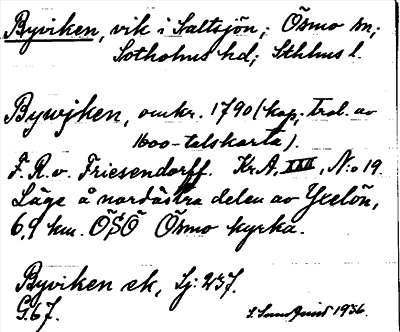 Byviken, vik i Saltsjön; Ösmo sn;
Sotholms hd; Sthlms l.
Bywjken, omkr. 1790 (kop. trol. av
1600-talskarta).
F. R. v. Friesendorff. Kr. A, XIII, N:o 19.
Läge å nordöstra delen av Yxelön,
6,9 km. ÖSÖ Ösmo kyrka.
Byviken ek, Sj: 237.
G. 67.
S. Sundquist 1936.